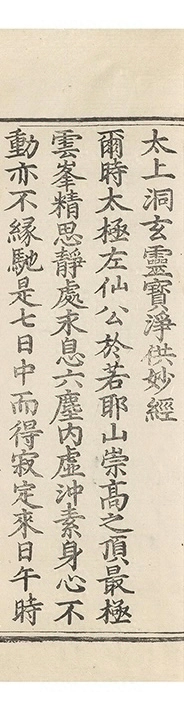 太上洞玄靈寶淨供妙經
爾時太極左仙公於若耶山崇高之頂最極
雲峯精思靜處求息六塵内虛沖素身心不
動亦不緣馳是七日中而得寂定來日午時